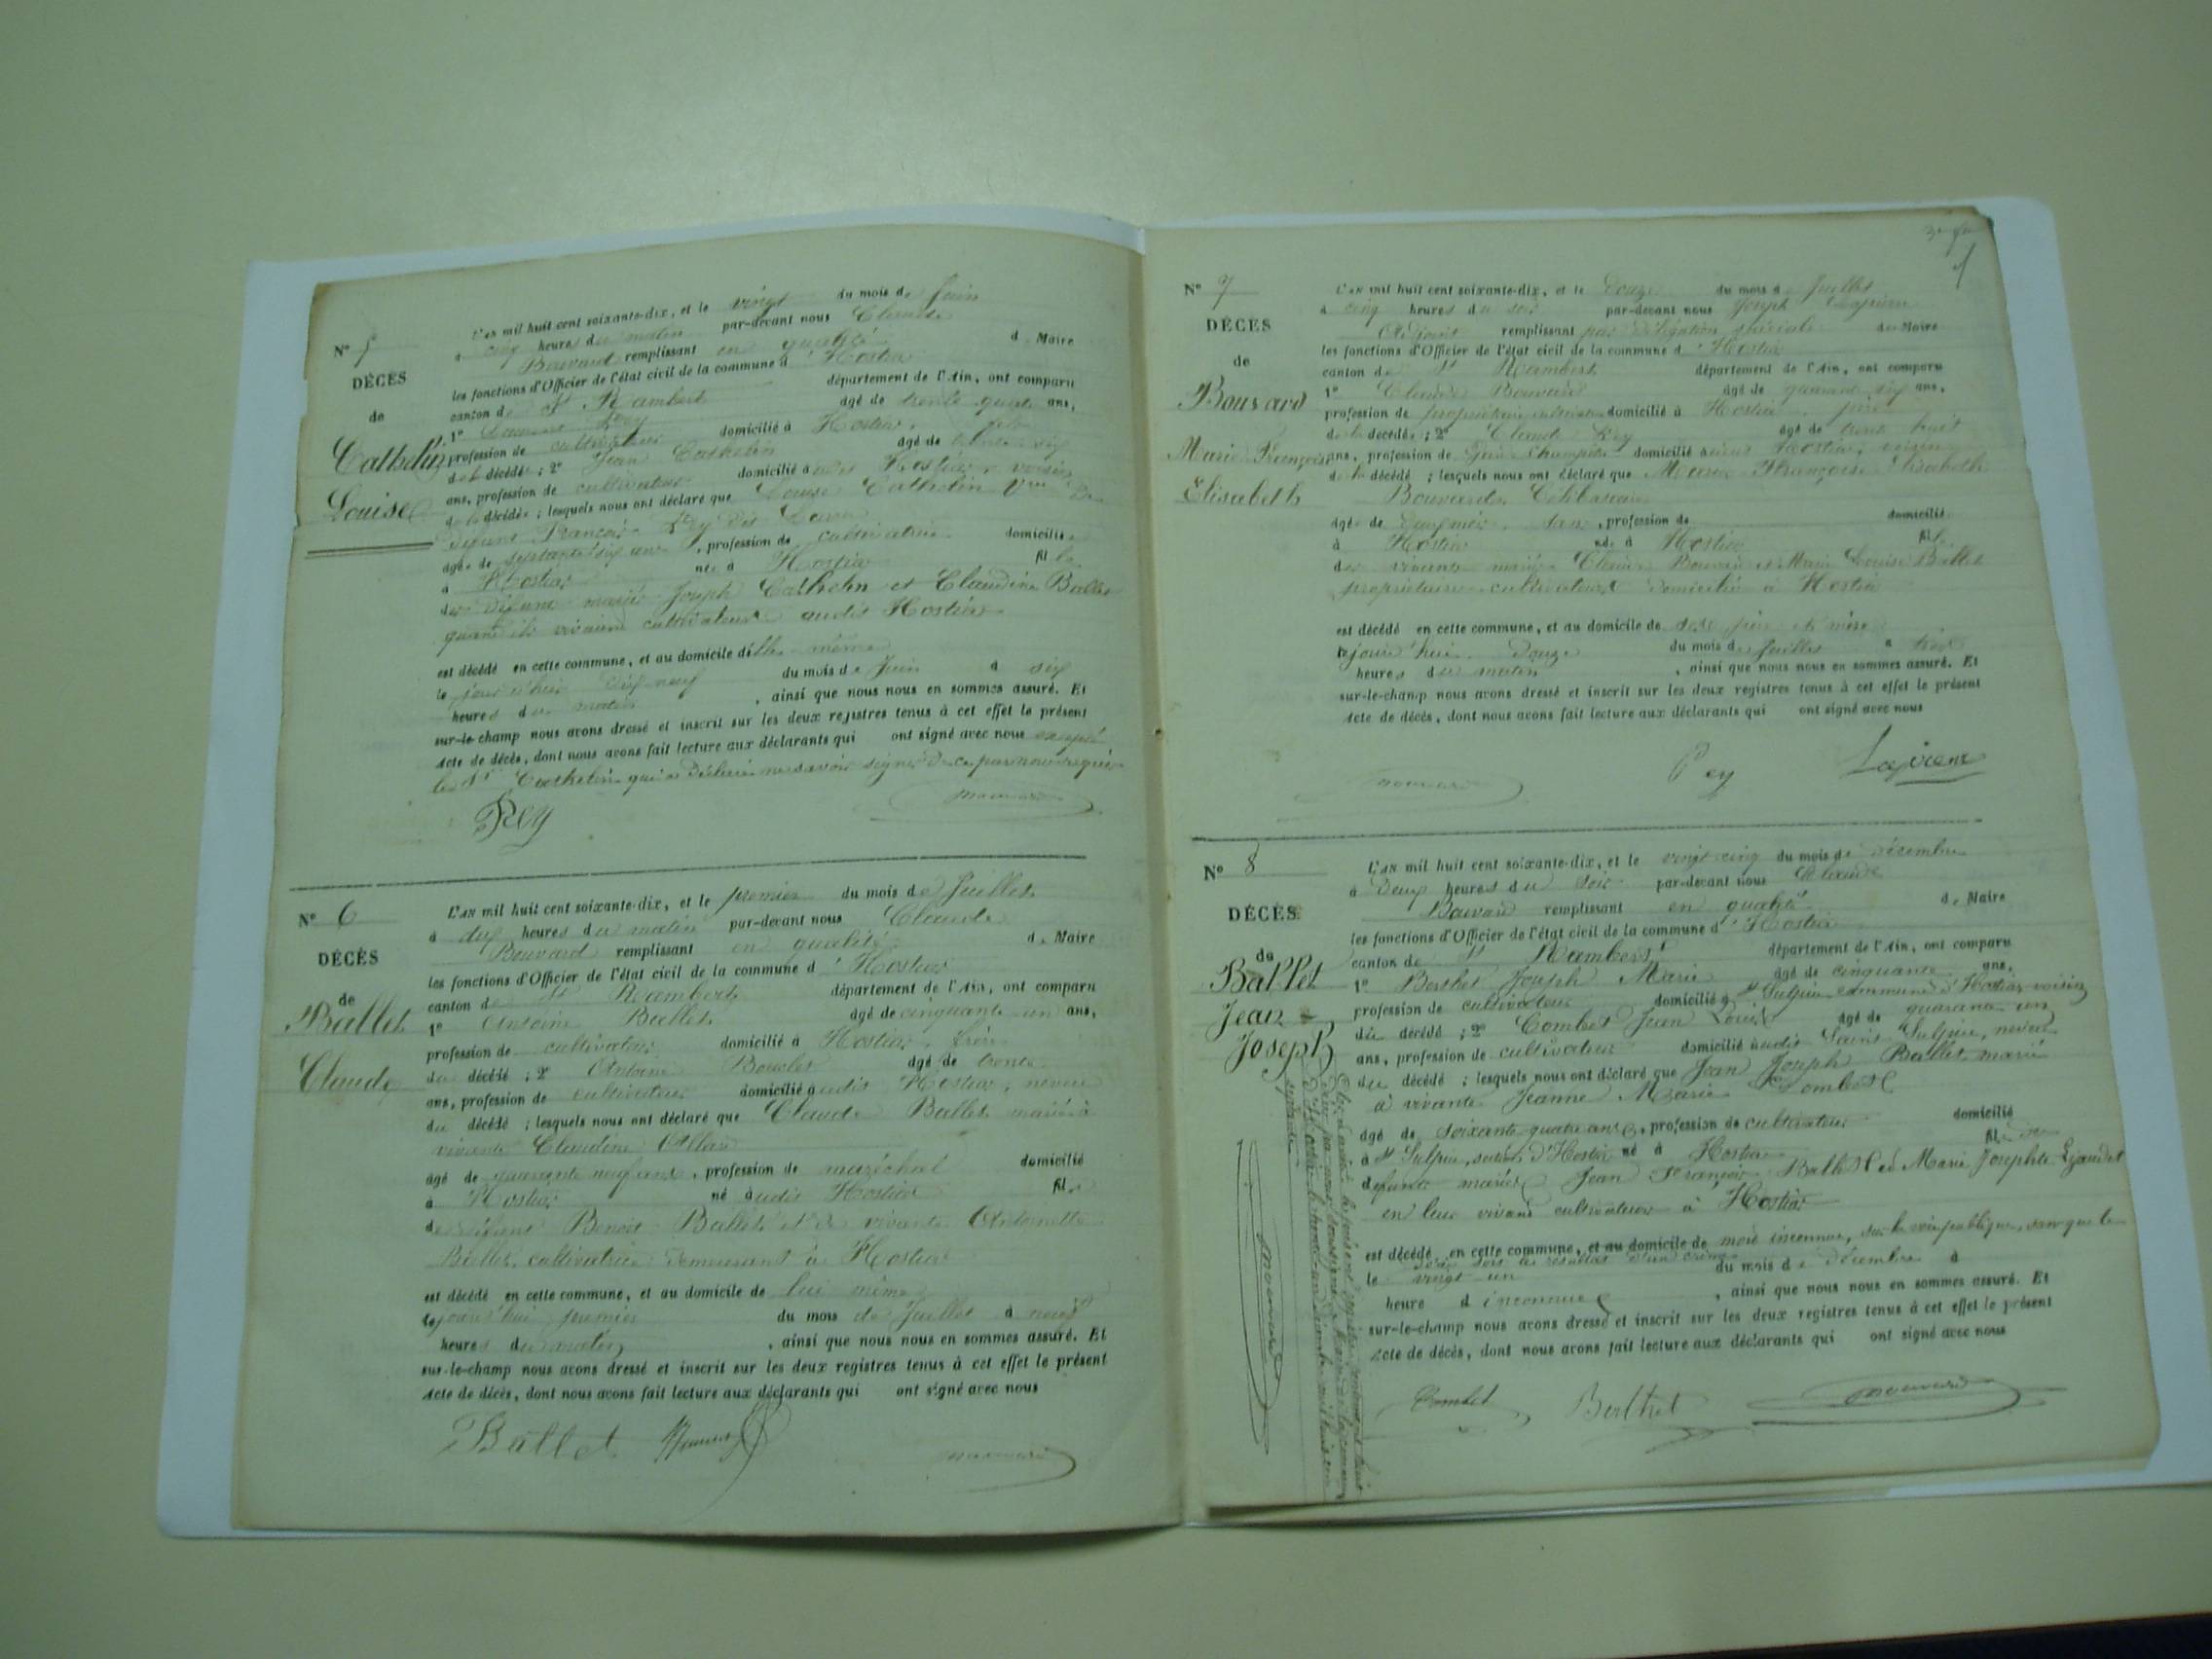 N° 5
DÉCÈS
de
Cathelin
Louise
L'AN mil huit cent soixante-dix, et le vingt du mois de Juin
à cinq heures du matin par-devant nous Claude
Bouvard remplissant en qualité de Maire
les fonctions d'Officier de l'état civil de la commune d'Hostiaz
canton de St Rambert département de l'Ain, ont comparu
1° Rey âgé de trente quatre ans,
profession de cultivateur domicilié à Hostiaz,
de la décédée ; 2° Jean Cathelin âgé de
ans, profession de cultivateur domicilié audit Hostiaz, voisin
de la décédée ; lesquels nous ont déclaré que Louise Cathelin Vve de
défunt François Rey
âgée de septante six ans, profession de cultivatrice domiciliée
à Hostiaz née à Hostiaz fille
des défunts mariés Joseph Cathelin et Claudine Ballet
quand ils vivaient cultivateurs audit Hostiaz
est décédée en cette commune, et au domicile d'elle même
le jour d'hier dix neuf du mois de Juin à six
heures du matin, ainsi que nous nous en sommes assuré. Et
sur-le-champ nous avons dressé et inscrit sur les deux registres tenus à cet effet le présent
Acte de décès, dont nous avons fait lecture aux déclarants qui ont signé avec nous excepté
le Sr Cathelin qui a déclaré ne savoir signer de ce par nous requis
Rey
Bouvard
N° 6
DÉCÈS
de
Ballet
Claude
L'AN mil huit cent soixante-dix, et le premier du mois de Juillet
à dix heures du matin par-devant nous Claude
Bouvard remplissant en qualité de Maire
les fonctions d'Officier de l'état civil de la commune d'Hostiaz
canton de St Rambert département de l'Ain, ont comparu
1° Antoine Ballet âgé de cinquante un ans,
profession de cultivateur domicilié à Hostiaz, frère
du décédé ; 2° Antoine âgé de trente
ans, profession de cultivateur domicilié audit Hostiaz, neveu
du décédé ; lesquels nous ont déclaré que Claude Ballet marié à
vivante Claudine
âgé de quarante neuf ans, profession de maréchal domicilié
à Hostiaz né audit Hostiaz fils
de défunt Benoit Ballet et de vivante Antoinette
Ballet, cultivatrice demeurant à Hostiaz
est décédé en cette commune, et au domicile de lui même
le jourd'hui premier du mois de Juillet à neuf
heures du matin, ainsi que nous nous en sommes assuré. Et
sur-le-champ nous avons dressé et inscrit sur les deux registres tenus à cet effet le présent
Acte de décès, dont nous avons fait lecture aux déclarants qui ont signé avec nous
Ballet
Bouvard
N° 7
DÉCÈS
de
Bouvard
Marie Françoise
Elisabeth
L'AN mil huit cent soixante-dix, et le douze du mois de Juillet
à cinq heures du soir par-devant nous Joseph Lapierre
Adjoint remplissant par délégation spéciale du Maire
les fonctions d'Officier de l'état civil de la commune d'Hostiaz
canton de St Rambert département de l'Ain, ont comparu
1° Claude Bouvard âgé de quarante six ans,
profession de propriétaire cultivateur domicilié à Hostiaz, père
de la décédée ; 2° Claude Rey âgé de trente huit
ans, profession de garde champêtre domicilié audit Hostiaz, voisin
de la décédée ; lesquels nous ont déclaré que Marie Françoise Elisabeth
Bouvard, Célibataire
âgée de ans, profession de domiciliée
à Hostiaz née à Hostiaz fille
des vivants mariés Claude Bouvard et Marie Louise Ballet
propriétaires cultivateurs domiciliés à Hostiaz
est décédée en cette commune, et au domicile de ses père et mère
le jourd'hui douze du mois de Juillet à trois
heures du matin, ainsi que nous nous en sommes assuré. Et
sur-le-champ nous avons dressé et inscrit sur les deux registres tenus à cet effet le présent
Acte de décès, dont nous avons fait lecture aux déclarants qui ont signé avec nous
Bouvard Rey Lapierre
N° 8
DÉCÈS
de
Ballet
Jean
Joseph
L'AN mil huit cent soixante-dix, et le vingt cinq du mois de décembre
à deux heures du soir par-devant nous Claude
Bouvard remplissant en qualité de Maire
les fonctions d'Officier de l'état civil de la commune d'Hostiaz
canton de St Rambert département de l'Ain, ont comparu
1° Berthet Joseph Marie âgé de cinquante ans,
profession de cultivateur domicilié à St Sulpice commune d'Hostiaz voisin
du décédé ; 2° Combet Jean Louis âgé de quarante un
ans, profession de cultivateur domicilié audit Saint Sulpice, neveu
du décédé ; lesquels nous ont déclaré que Jean Joseph Ballet marié
à vivante Jeanne Marie Combet
âgé de soixante quatre ans, profession de cultivateur domicilié
à St Sulpice, section d'Hostiaz né à Hostiaz fils de
défunts mariés Jean François Ballet et Marie Josephte
en leur vivant cultivateurs à Hostiaz
est décédé en cette commune, et au domicile de mort inconnue, sur la voie publique, sans que le
le vingt un du mois de décembre à
heure d inconnue, ainsi que nous nous en sommes assuré. Et
sur-le-champ nous avons dressé et inscrit sur les deux registres tenus à cet effet le présent
Acte de décès, dont nous avons fait lecture aux déclarants qui ont signé avec nous
Combet Berthet Bouvard
Clos et arrêté le présent registre
par nous soussigné Maire de la commune
d'Hostiaz, le trente un décembre mil huit cent
septante
Bouvard